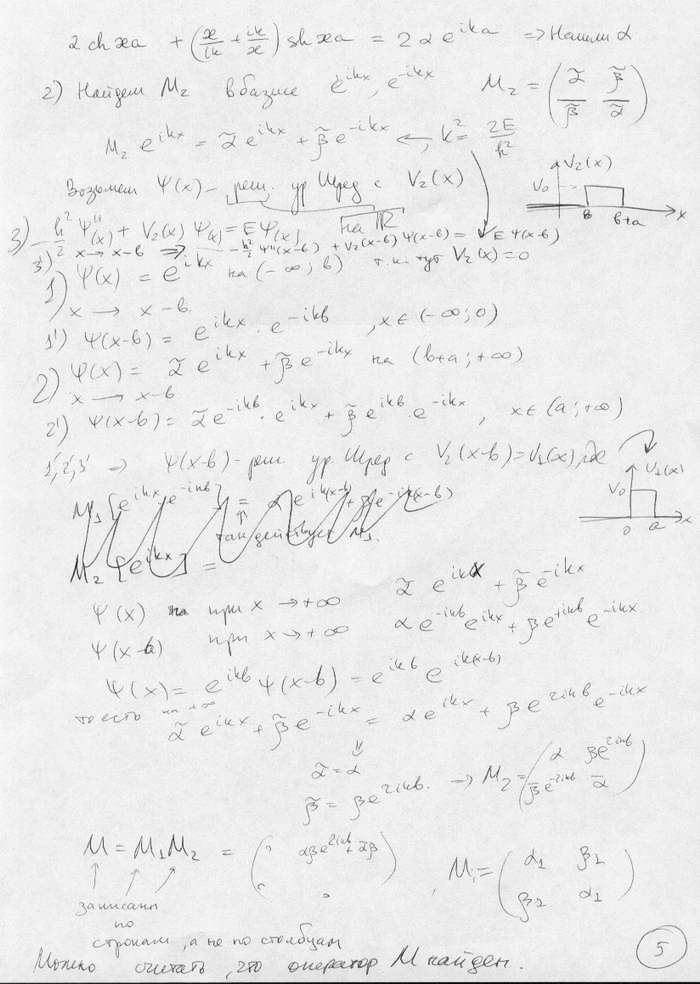 2 ch ϰa + (ϰ/ik + ik/ϰ) sh ϰa = 2 α e^{ika} ⇒ Нашли α
2) Найдем M₂ в базисе e^{ikx}, e^{-ikx} M₂ = (α̃ β̃ / β̃̄ α̃̄)
M₂ e^{ikx} = α̃ e^{ikx} + β̃ e^{-ikx} ←, k² = 2E/ħ²
Возьмем Ψ(x) – реш. ур Шред с V₂(x)
на ℝ
V₂(x) V₀ b b+a x
3) -ħ²/2 Ψ''(x) + V₂(x) Ψ(x) = EΨ(x)
3') x → x-b ⇒ -ħ²/2 Ψ''(x-b) + V₂(x-b) Ψ(x-b) = E Ψ(x-b)
1) Ψ(x) = e^{ikx} на (-∞; b) т.к. тут V₂(x)=0
x → x-b
1') Ψ(x-b) = e^{ikx} · e^{-ikb}, x∈(-∞; 0)
2) Ψ(x) = α̃ e^{ikx} + β̃ e^{-ikx} на (b+a; +∞)
x → x-b
2') Ψ(x-b) = α̃ e^{-ikb} · e^{ikx} + β̃ e^{ikb} · e^{-ikx}, x∈(a; +∞)
1', 2', 3' ⇒ Ψ(x-b) – реш ур Шред с V₂(x-b) = V₁(x), где
V₁(x) V₀ 0 a x
M₁[e^{ikx} e^{-ikb}] = α e^{ik(x-b)} + β e^{-ik(x-b)}
так действует M₁.
M₂[e^{ikx}] =
Ψ(x) при x → +∞ α̃ e^{ikx} + β̃ e^{-ikx}
Ψ(x-b) при x → +∞ α e^{-ikb} e^{ikx} + β e^{+ikb} e^{-ikx}
Ψ(x) = e^{ikb} Ψ(x-b) = e^{ikb} e^{ik(x-b)}
то есть на +∞ α̃ e^{ikx} + β̃ e^{-ikx} = α e^{ikx} + β e^{2ikb} e^{-ikx}
⇓
α̃ = α
β̃ = β e^{2ikb}. → M₂ = (α βe^{2ikb} / β̄e^{-2ikb} ᾱ)
M = M₁M₂ = ( αβe^{2ikb} + ᾱβ ), M₁ = (α₁ β₁ / β₂ α₁)
записаны
по
строкам, а не по столбцам
Можно считать, что оператор M найден.
5